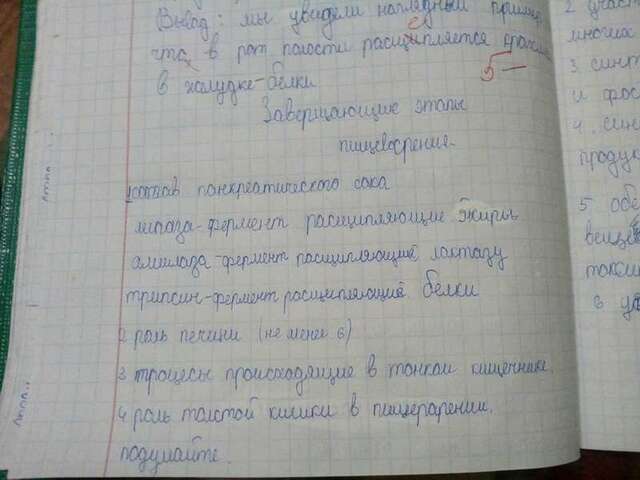 Вывод: мы увидели наглядный пример
что в рот полости расщипляется крахмал
в холудке-белки
5-
Завершающие этапы
пищеворения.
1 состав панкреатического сока
липаза-фермент расщипляющие жиры
амилаза-фермент расщипляющий лактазу
трипсин-фермент расщипляющий белки
2 роль печини (не менее 6)
3 процесы происходящие в тонком кишечнике.
4 роль толстой кишки в пищерарении.
подумайте.
2 участ
многих
3. синт
и фос
4. син
продук
5 обе
вещев
токси
в